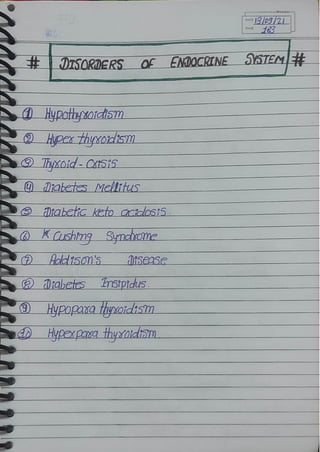 DATE 13/09/21
PAGE 163
# DISORDERS OF ENDOCRINE SYSTEM #
① Hypothyroidism
② Hyper thyroidism
③ Thyroid - Crisis
④ Diabetes Mellitus
⑤ Diabetic keto acidosis
⑥ * Cushing Syndrome
⑦ Addison's Disease
⑧ Diabetes Insipidus
⑨ Hypopara thyroidism
⑩ Hyperpara thyroidism